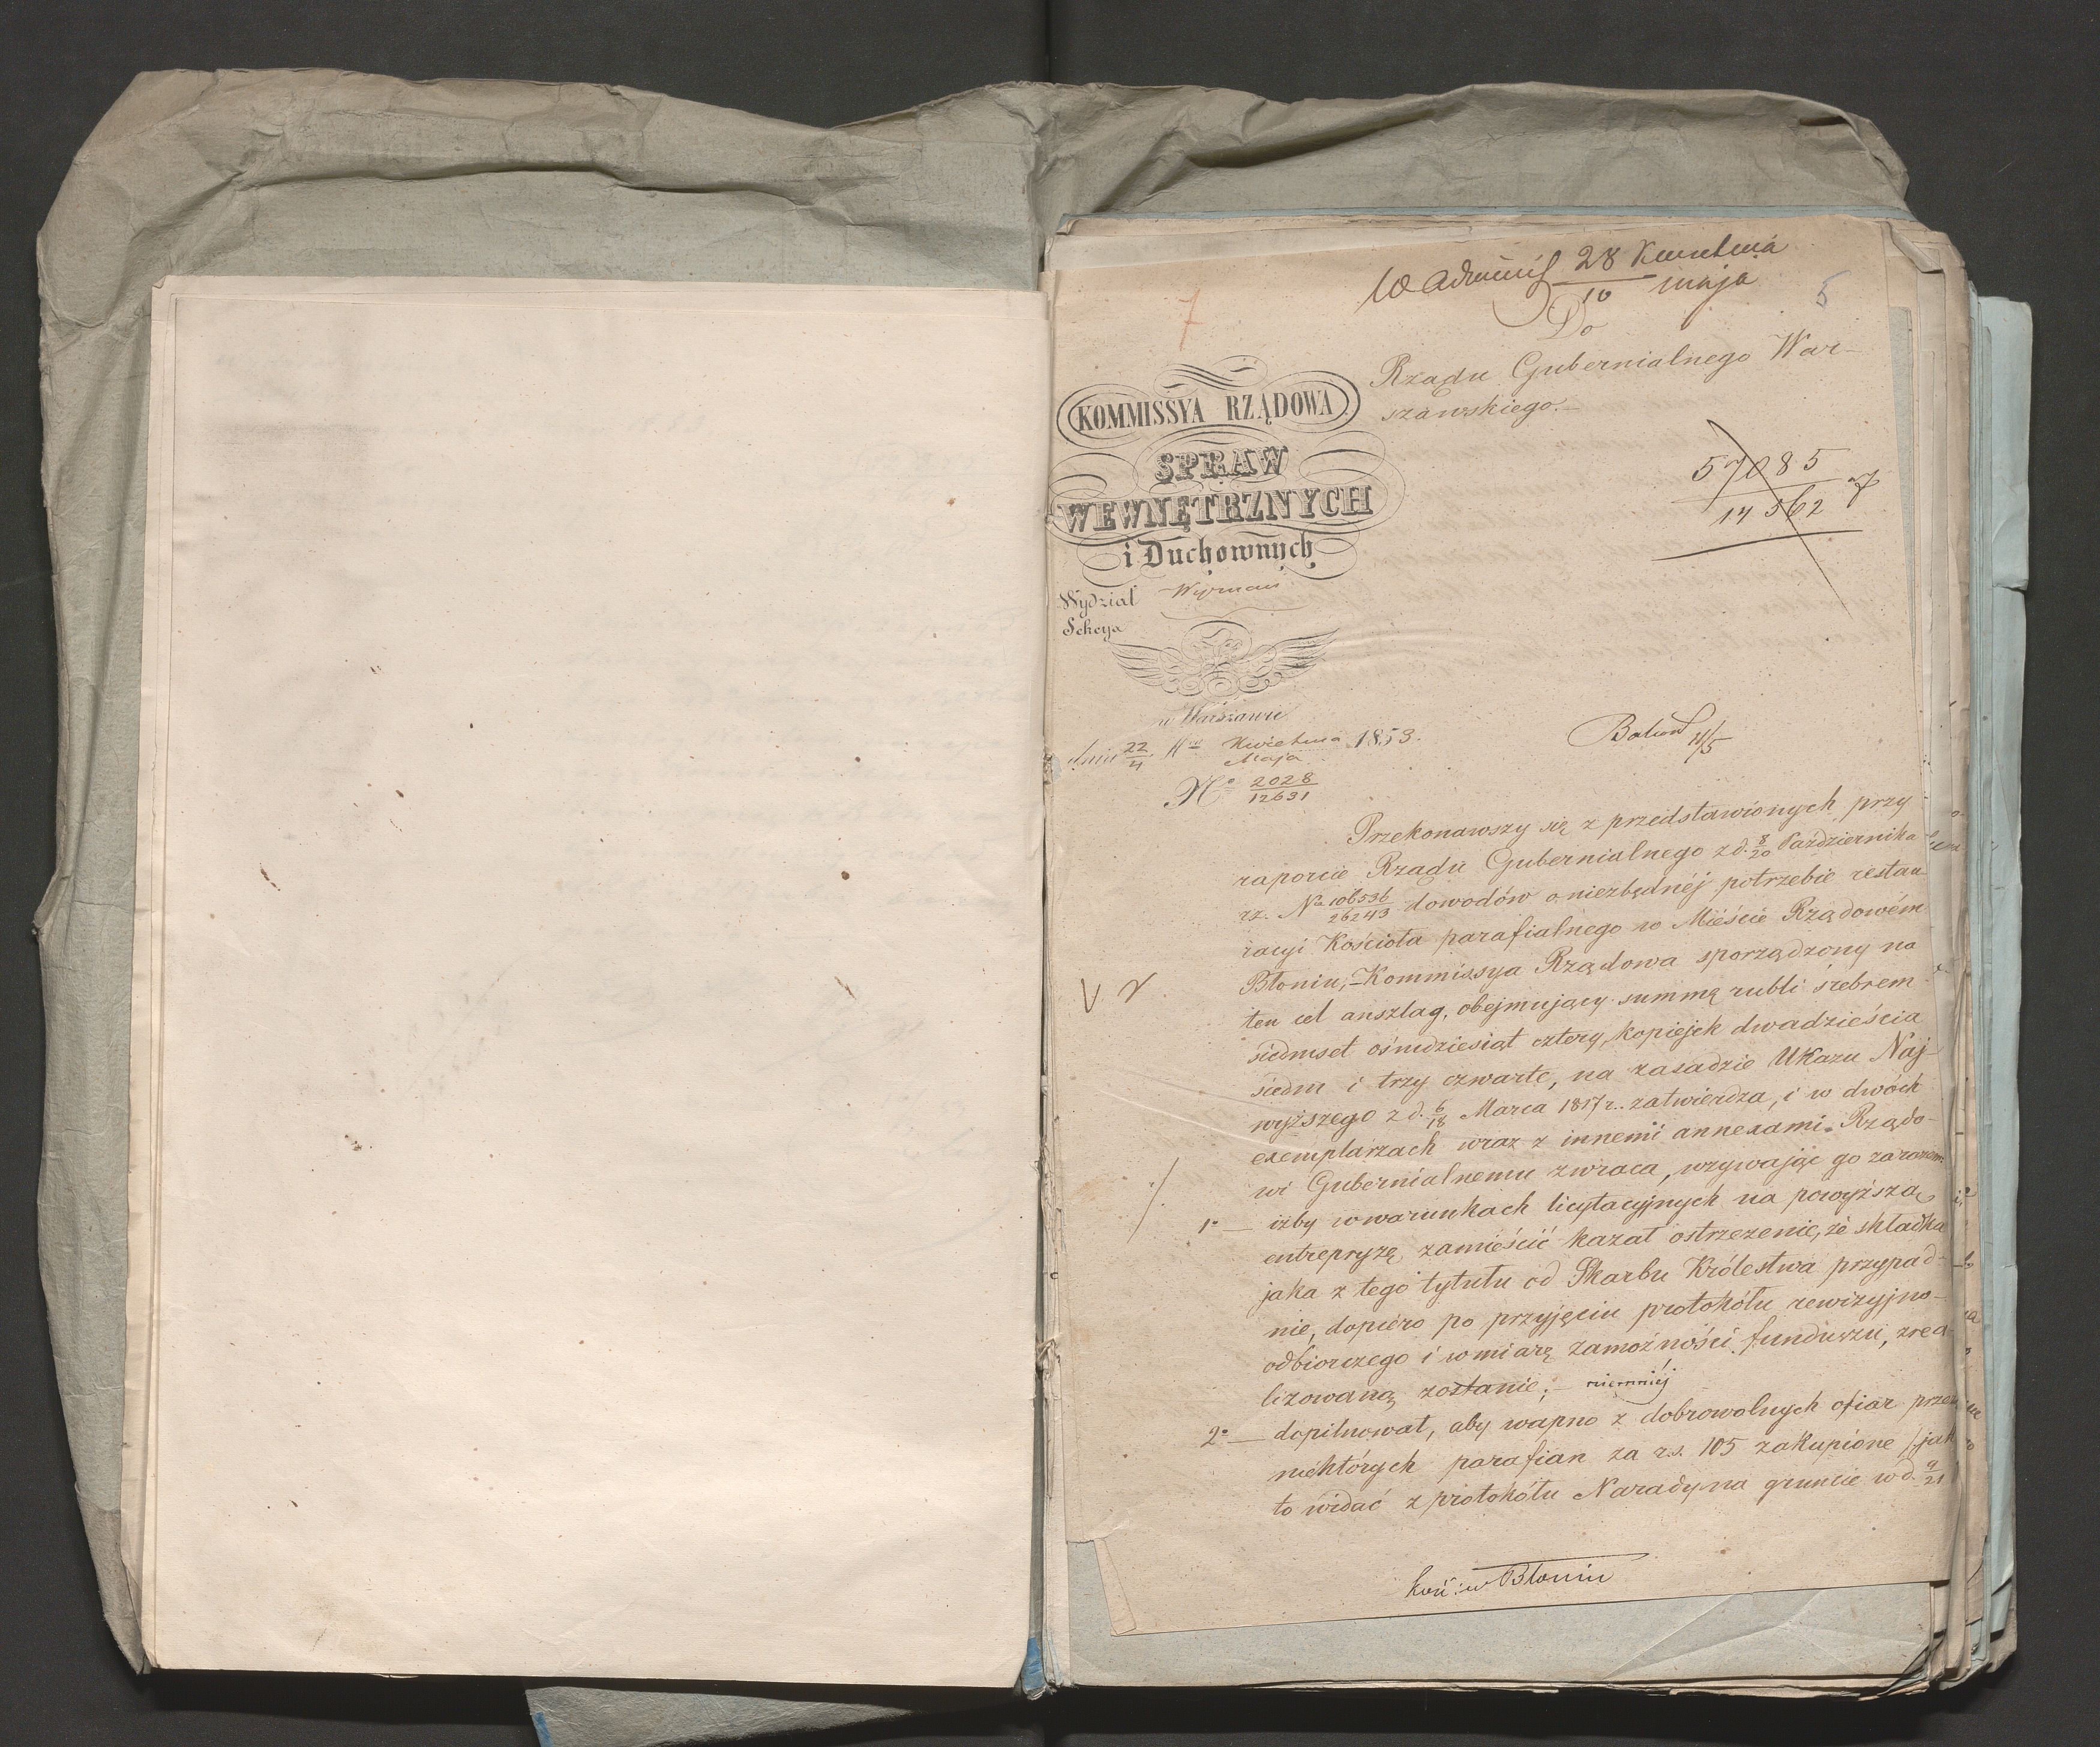 W Adminis 28 Kwietnia
10 maja
7
5
Do
Rządu Gubernialnego War-
szawskiego.
KOMMISSYA RZĄDOWA
SPRAW
WEWNĘTRZNYCH
i Duchownych
Wydział Wyznań
Sekcya
57085
14562
w Warszawie
dnia 22/4 Kwietnia 1853.
Maja
No 2028/12631
11/5
Przekonawszy się z przedstawionych przy
raporcie Rządu Gubernialnego z d. 8/20 Października
rz. No 106536/26243 dowodów o niezbędnéj potrzebie restau-
racyi Kościoła parafialnego w Mieście Rządowém
Błoniu, Kommissya Rządowa sporządzony na
ten cel anszlag, obejmujący summę rubli srebrem
siedmset ośmdziesiąt cztery, kopiejek dwadzieścia
siedm i trzy czwarte, na zasadzie Ukazu Naj-
wyższego z d. 6/18 Marca 1817 r. zatwierdza, i w dwóch
exemplarzach wraz z innemi annexami Rządo-
wi Gubernialnemu zwraca, wzywając go zarazem:
1o — iżby w warunkach licytacyjnych na powyższą
entrepryzę zamieścić kazał ostrzezenie, że składka
jaka z tego tytułu od Skarbu Królestwa przypad-
nie, dopiéro po przyjęciu protokółu rewizyjno-
odbiorczego i w miarę zamożności funduszu, zrea-
lizowaną zostanie; niemniéj
2o — dopilnował, aby wapno z dobrowolnych ofiar przez
niektórych parafian za rs. 105 zakupione /: jak
to widać z protokółu Narady na gruncie w d. 9/21
Koś: w Błoniu